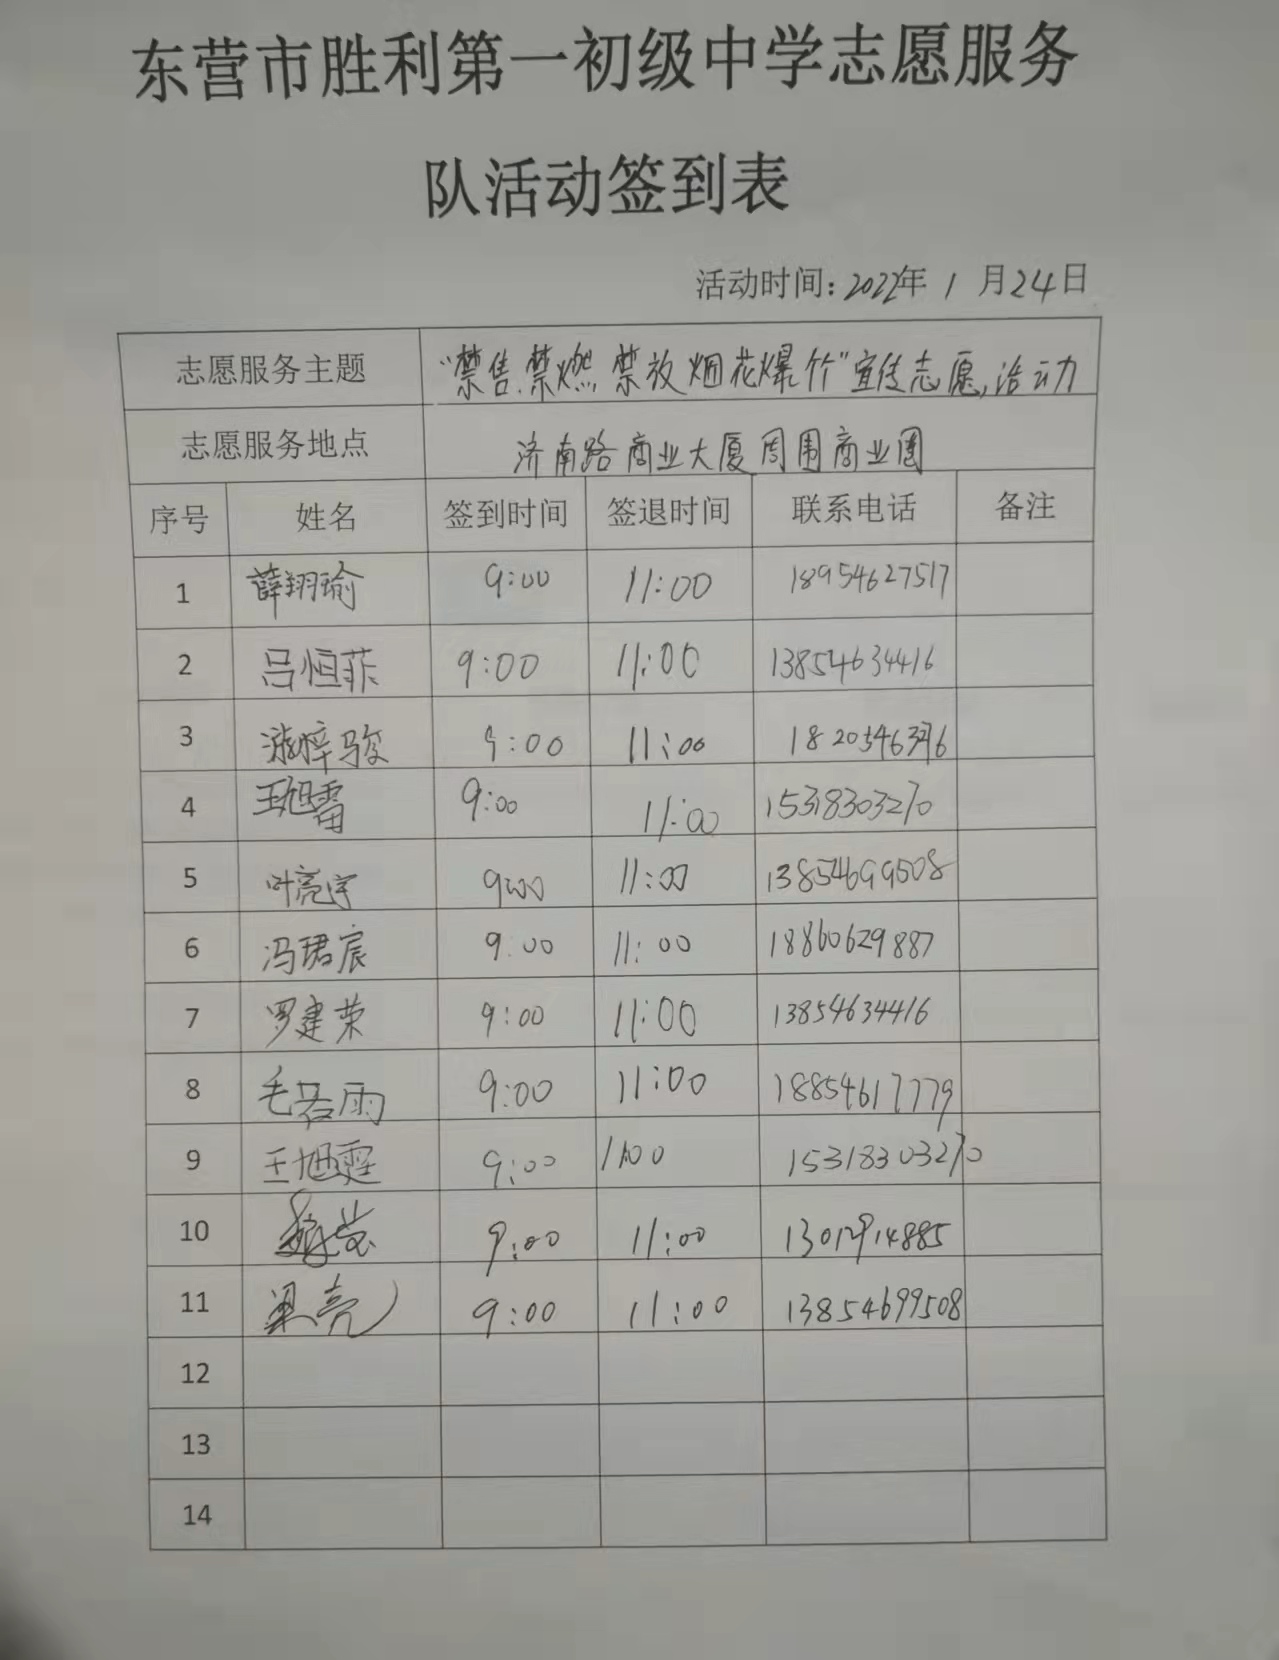 东营市胜利第一初级中学志愿服务
队活动签到表
活动时间：2022年 1 月24日
志愿服务主题 “禁售.禁燃.禁放烟花爆竹”宣传志愿活动
志愿服务地点 济南路商业大厦周围商业圈
序号 姓名 签到时间 签退时间 联系电话 备注
1 薛翔瑜 9:00 11:00 18954627517
2 吕恒菲 9:00 11:00 13854634416
3 梓骏 9:00 11:00
4 王旭雷 9:00 11:00 15318303270
5 叶亮宇 9:00 11:00 13854699508
6 冯珺宸 9:00 11:00 18860629887
7 罗建荣 9:00 11:00 13854634416
8 毛若雨 9:00 11:00 18854617779
9 王旭霆 9:00 11:00 15318303270
10 9:00 11:00 13012914885
11 梁亮 9:00 11:00 13854699508
12
13
14